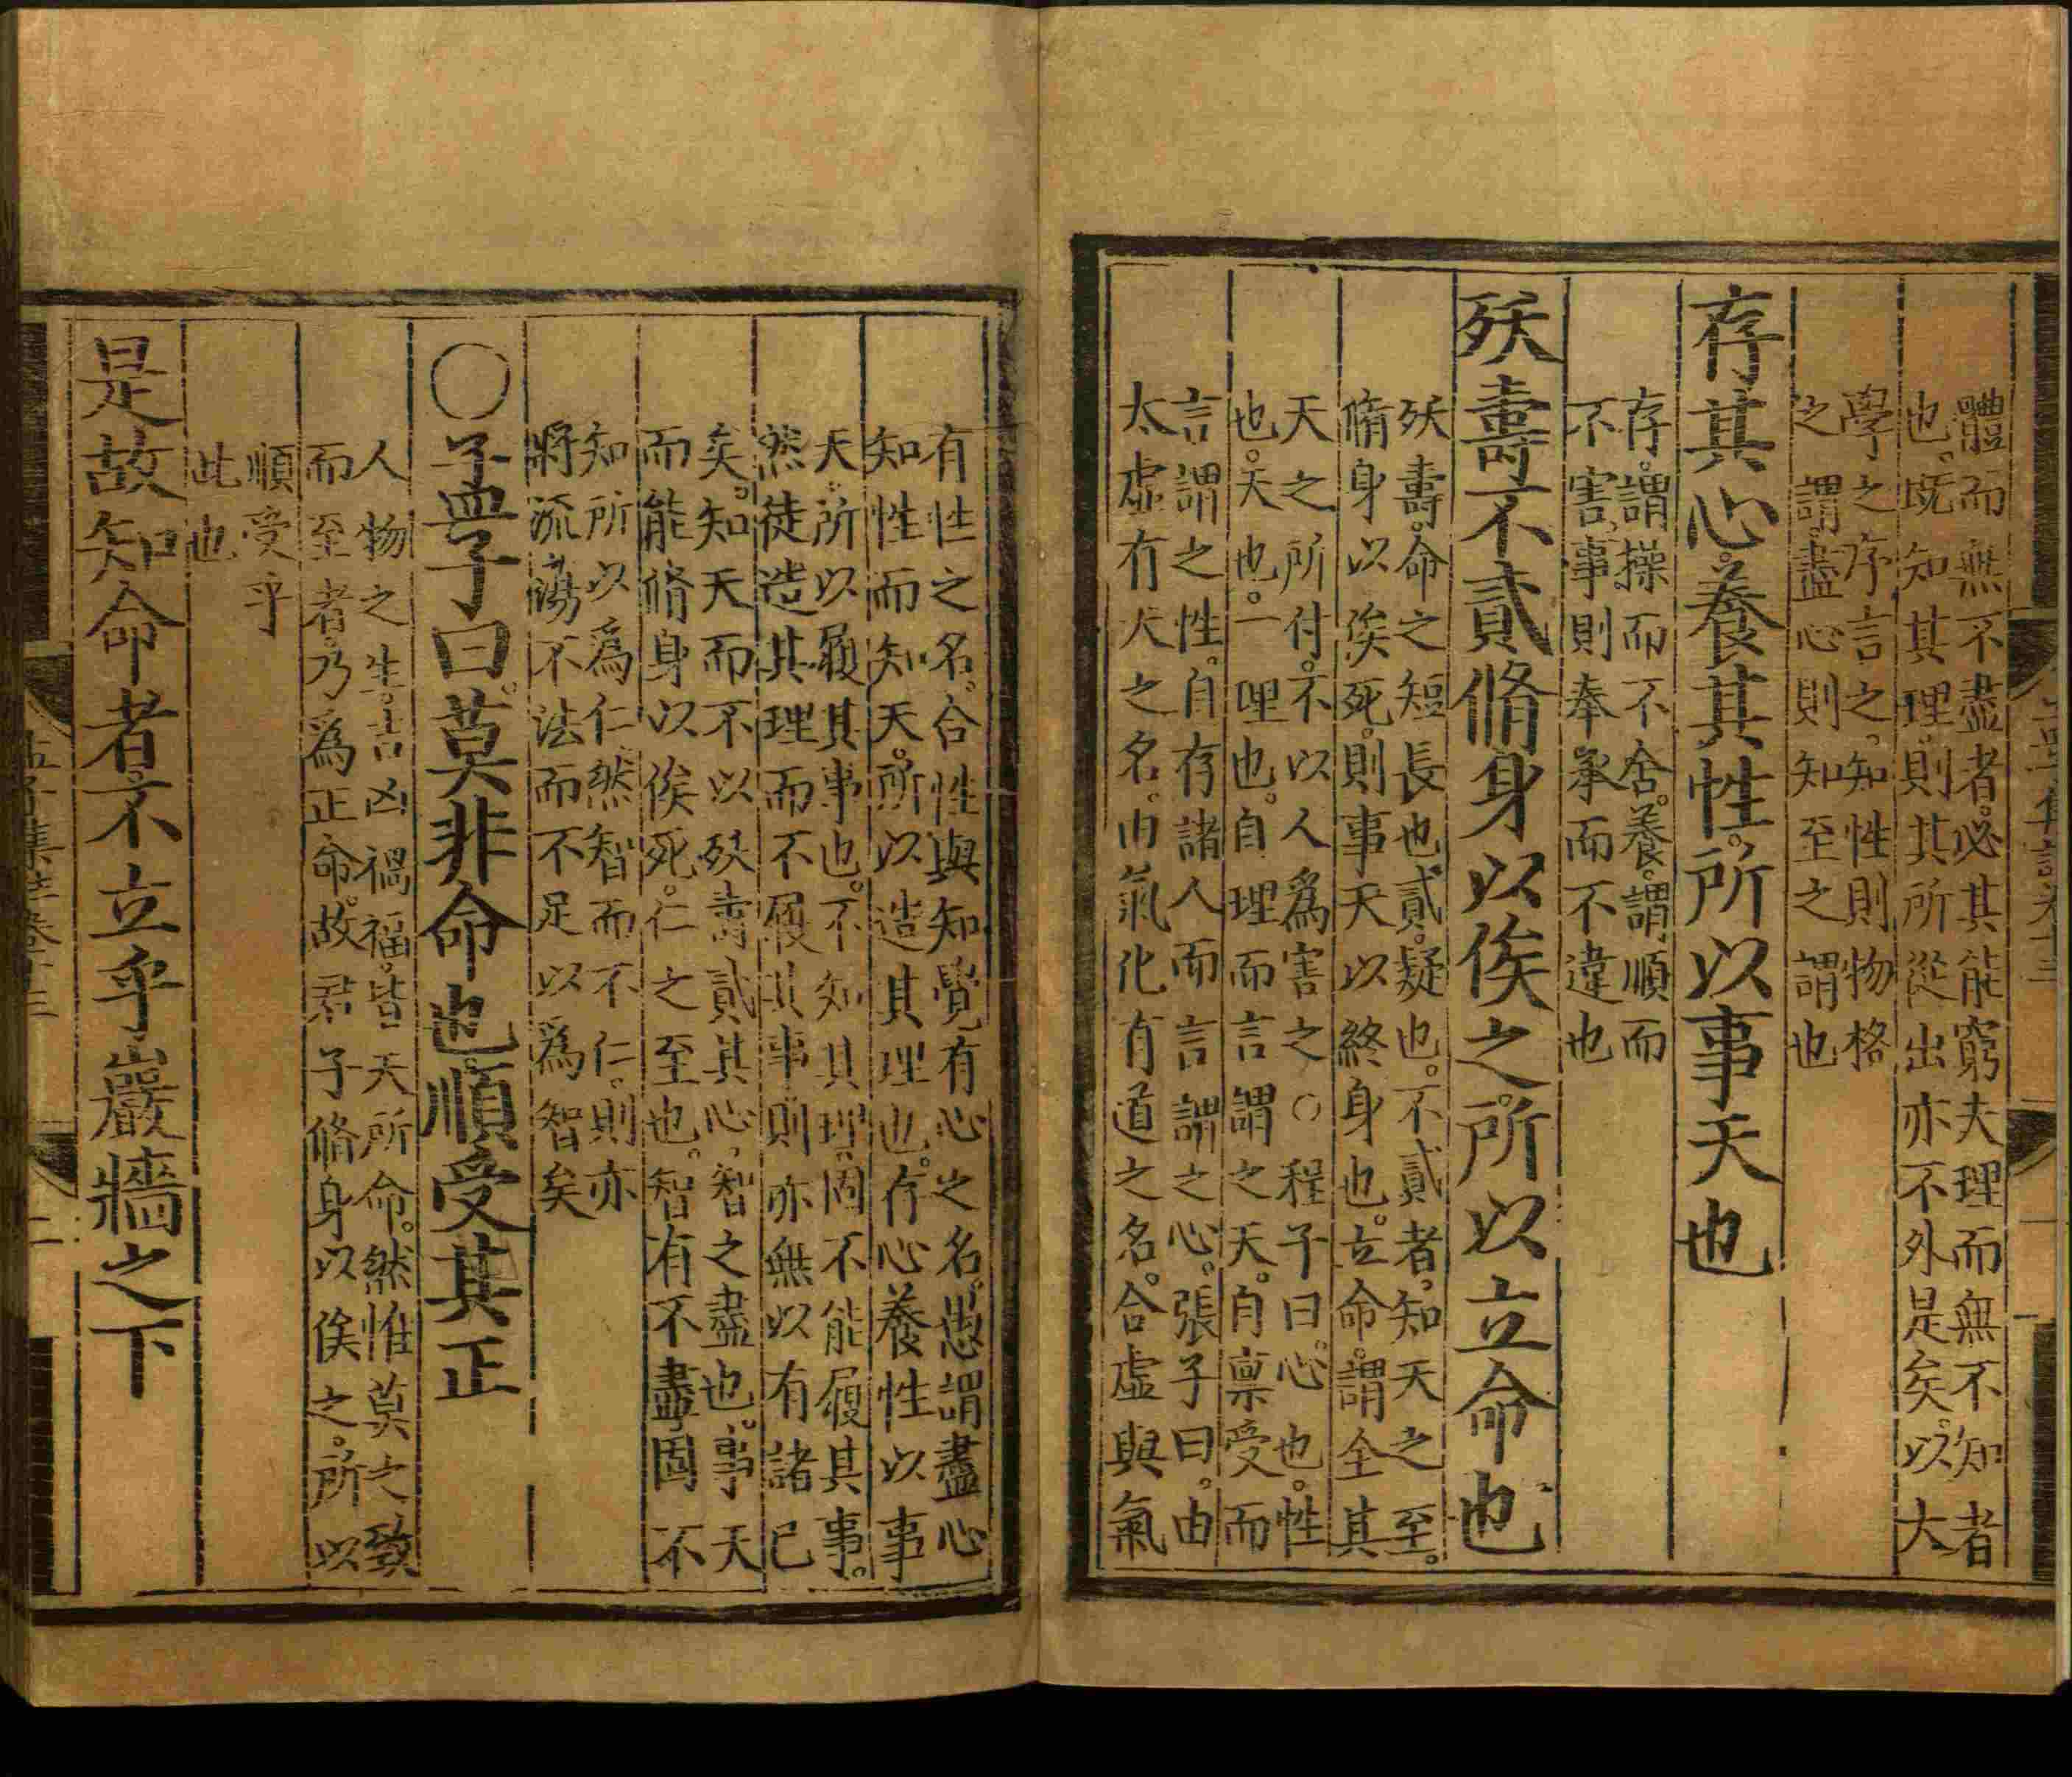 體而無不盡者。必其能窮夫理而無不知者
也。既知其理。則其所從出亦不外是矣。以大
學之序言之。知性則物格
之謂。盡心則知至之謂也
存其心。養其性。所以事天也
存。謂操而不舍。養。謂順而
不害。事則奉承而不違也
殀壽不貳。脩身以俟之。所以立命也
殀壽。命之短長也。貳。疑也。不貳者。知天之至。
脩身以俟死。則事天以終身也。立命。謂全其
天之所付。不以人爲害之○程子曰。心也。性
也。天也。一理也。自理而言謂之天。自禀受而
言謂之性。自存諸人而言謂之心。張子曰。由
太虛有天之名。由氣化有道之名。合虛與氣
有性之名。合性與知覺有心之名。愚謂盡心
知性而知天。所以造其理也。存心養性以事
天。所以履其事也。不知其理。固不能履其事。
然徒造其理而不履其事則亦無以有諸己
矣。知天而不以殀壽貳其心。智之盡也。事天
而能脩身以俟死。仁之至也。智有不盡固不
知所以爲仁。然智而不仁。則亦
將流蕩不法而不足以爲智矣
○孟子曰。莫非命也。順受其正
人物之生。吉凶禍福。皆天所命。然惟莫之致
而至者。乃爲正命。故君子脩身以俟之。所以
順受乎
此也
是故知命者。不立乎巖牆之下
孟子集註卷十三
二